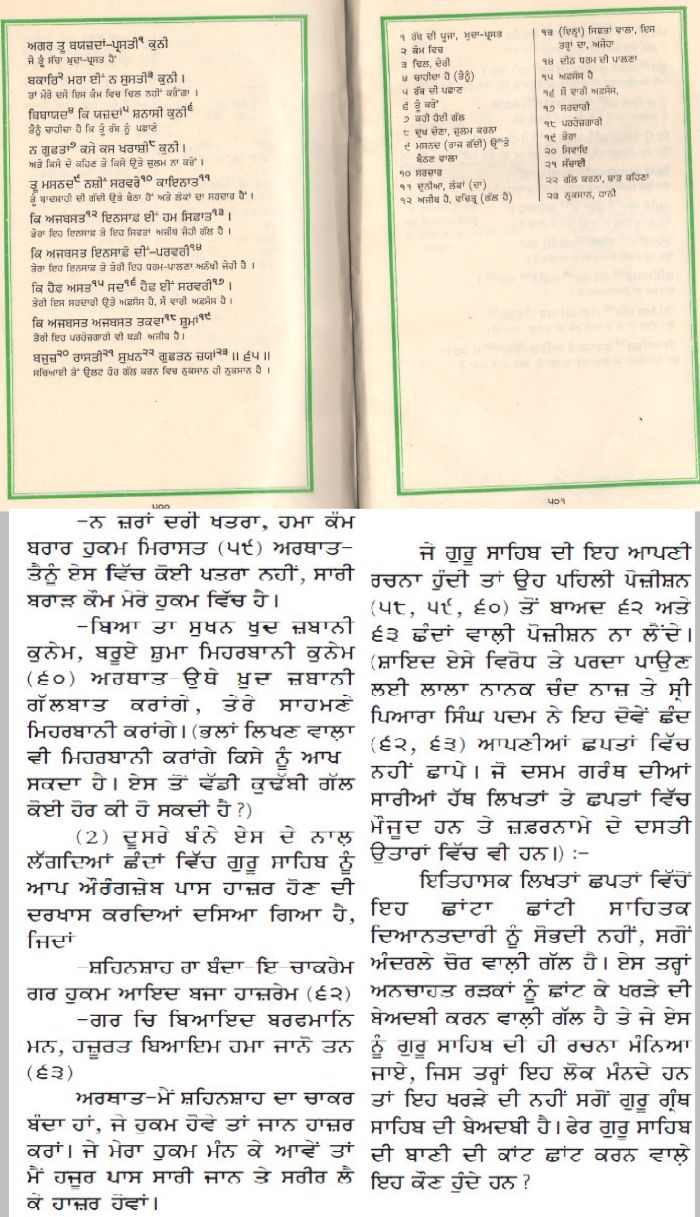 ਅਗਰ ਤੂ ਬਯਜ਼ਦਾਂ-ਪ੍ਰਸਤੀ੧ ਕੁਨੀ
ਜੇ ਤੂੰ ਸੱਚਾ ਖ਼ੁਦਾ-ਪ੍ਰਸਤ ਹੈਂ
ਬਕਾਰਿ੨ ਮਰਾ ਈਂ ਨ ਸੁਸਤੀ੩ ਕੁਨੀ।
ਤਾਂ ਮੇਰੇ ਦਸੇ ਇਸ ਕੰਮ ਵਿਚ ਢਿਲ ਨਾਂਹ ਕਰੇਂਗਾ।
ਬਿਬਾਯਦ੪ ਕਿ ਯਜ਼ਦਾਂ੫ ਸ਼ਨਾਸੀ ਕੁਨੀ੬
ਤੈਨੂੰ ਚਾਹੀਦਾ ਹੈ ਕਿ ਤੂੰ ਰੱਬ ਨੂੰ ਪਛਾਣੇਂ
ਨ ਗੁਫ਼ਤਾ੭ ਕਸੇ ਕਸ ਖਰਾਸ਼ੀ੮ ਕੁਨੀ।
ਅਤੇ ਕਿਸੇ ਦੇ ਕਹਿਣ ਤੇ ਕਿਸੇ ਉਤੇ ਜ਼ੁਲਮ ਨਾ ਕਰੇਂ।
ਤੂ ਮਸਨਦ੯ ਨਸ਼ੀਂ ਸਰਵਰੇ੧੦ ਕਾਇਨਾਤ੧੧
ਤੂੰ ਬਾਦਸ਼ਾਹੀ ਦੀ ਗੱਦੀ ਉਤੇ ਬੈਠਾ ਹੈਂ ਅਤੇ ਲੋਕਾਂ ਦਾ ਸਰਦਾਰ ਹੈਂ।
ਕਿ ਅਜਬਸਤ੧੨ ਇਨਸਾਫ਼ ਈਂ ਹਮ ਸਿਫ਼ਾਤ੧੩।
ਤੇਰਾ ਇਹ ਇਨਸਾਫ਼ ਤੇ ਇਹ ਸਿਫਤਾਂ ਅਜੀਬ ਜੇਹੀ ਗੱਲ ਹੈ।
ਕਿ ਅਜਬਸਤ ਇਨਸਾਫ਼ੋ ਦੀਂ-ਪਰਵਰੀ੧੪
ਤੇਰਾ ਇਹ ਇਨਸਾਫ਼ ਤੇ ਤੇਰੀ ਇਹ ਧਰਮ-ਪਾਲਣਾ ਅਨੋਖੀ ਜੇਹੀ ਹੈ।
ਕਿ ਹੈਫ਼ ਅਸਤ੧੫ ਸਦ੧੬ ਹੈਫ਼ ਈਂ ਸਰਵਰੀ੧੭।
ਤੇਰੀ ਇਸ ਸਰਦਾਰੀ ਉਤੇ ਅਫ਼ਸੋਸ ਹੈ, ਸੌ ਵਾਰੀ ਅਫ਼ਸੋਸ ਹੈ।
ਕਿ ਅਜਬਸਤ ਅਜਬਸਤ ਤਕਵਾ੧੮ ਸ਼ੁਮਾਂ੧੯
ਤੇਰੀ ਇਹ ਪਰਹੇਜ਼ਗਾਰੀ ਵੀ ਬੜੀ ਅਜੀਬ ਹੈ।
ਬਜੁਜ਼੨੦ ਰਾਸਤੀ੨੧ ਸੁਖ਼ਨ੨੨ ਗੁਫ਼ਤਨ ਜ਼ਯਾਂ੨੩॥੬੫॥
ਸਚਿਆਈ ਤੋਂ ਉਲਟ ਹੋਰ ਗੱਲ ਕਰਨ ਵਿਚ ਨੁਕਸਾਨ ਹੀ ਨੁਕਸਾਨ ਹੈ।
੫੦੦
੧ ਰੱਬ ਦੀ ਪੂਜਾ, ਖ਼ੁਦਾ-ਪ੍ਰਸਤ
੨ ਕੰਮ ਵਿਚ
੩ ਢਿਲ, ਦੇਰੀ
੪ ਚਾਹੀਦਾ ਹੈ (ਤੈਨੂੰ)
੫ ਰੱਬ ਦੀ ਪਛਾਣ
੬ ਤੂੰ ਕਰੇਂ
੭ ਕਹੀ ਹੋਈ ਗੱਲ
੮ ਦੁਖ ਦੇਣਾ, ਜ਼ੁਲਮ ਕਰਨਾ
੯ ਮਸਨਦ (ਰਾਜ ਗੱਦੀ) ਉੱਤੇ
ਬੈਠਣ ਵਾਲਾ
੧੦ ਸਰਦਾਰ
੧੧ ਦੁਨੀਆ, ਲੋਕਾਂ (ਦਾ)
੧੨ ਅਜੀਬ ਹੈ, ਵਚਿਤ੍ਰ (ਗੱਲ ਹੈ)
੧੩ (ਇਨ੍ਹਾਂ) ਸਿਫ਼ਤਾਂ ਵਾਲਾ, ਇਸ
ਤਰ੍ਹਾਂ ਦਾ, ਅਜੇਹਾ
੧੪ ਦੀਨ ਧਰਮ ਦੀ ਪਾਲਣਾ
੧੫ ਅਫ਼ਸੋਸ ਹੈ
੧੬ ਸੌ ਵਾਰੀ ਅਫ਼ਸੋਸ,
੧੭ ਸਰਦਾਰੀ
੧੮ ਪਰਹੇਜ਼ਗਾਰੀ
੧੯ ਤੇਰਾ
੨੦ ਸਿਵਾਇ
੨੧ ਸੱਚਾਈ
੨੨ ਗੱਲ ਕਰਨਾ, ਬਾਤ ਕਹਿਣਾ
੨੩ ਨੁਕਸਾਨ, ਹਾਨੀ
੫੦੧
-ਨ ਜ਼ਰਾਂ ਦਰੀ ਖਤਰਾ, ਹਮਾ ਕੌਮ
ਬਰਾਰ ਹੁਕਮ ਮਿਰਾਸਤ (੫੯) ਅਰਥਾਤ-
ਤੈਨੂੰ ਏਸ ਵਿੱਚ ਕੋਈ ਖਤਰਾ ਨਹੀਂ, ਸਾਰੀ
ਬਰਾੜ ਕੌਮ ਮੇਰੇ ਹੁਕਮ ਵਿੱਚ ਹੈ।
-ਬਿਆ ਤਾ ਸੁਖਨ ਖੁਦ ਜ਼ਬਾਨੀ
ਕੁਨੇਮ, ਬਰੂਏ ਸ਼ੁਮਾ ਮਿਹਰਬਾਨੀ ਕੁਨੇਮ
(੬੦) ਅਰਥਾਤ-ਉਥੇ ਖ਼ੁਦ ਜ਼ਬਾਨੀ
ਗੱਲਬਾਤ ਕਰਾਂਗੇ, ਤੇਰੇ ਸਾਹਮਣੇ
ਮਿਹਰਬਾਨੀ ਕਰਾਂਗੇ। (ਭਲਾਂ ਲਿਖਣ ਵਾਲ਼ਾ
ਵੀ ਮਿਹਰਬਾਨੀ ਕਰਾਂਗੇ ਕਿਸੇ ਨੂੰ ਆਖ
ਸਕਦਾ ਹੈ। ਏਸ ਤੋਂ ਵੱਡੀ ਕੁਢੱਬੀ ਗੱਲ
ਕੋਈ ਹੋਰ ਕੀ ਹੋ ਸਕਦੀ ਹੈ ?)
(2) ਦੂਸਰੇ ਬੰਨੇ ਏਸ ਦੇ ਨਾਲ਼
ਲੱਗਦਿਆਂ ਛੰਦਾਂ ਵਿੱਚ ਗੁਰੂ ਸਾਹਿਬ ਨੂੰ
ਆਪ ਔਰੰਗਜ਼ੇਬ ਪਾਸ ਹਾਜ਼ਰ ਹੋਣ ਦੀ
ਦਰਖਾਸ ਕਰਦਿਆਂ ਦਸਿਆ ਗਿਆ ਹੈ,
ਜਿਦਾਂ
-ਸ਼ਹਿਨਸ਼ਾਹ ਰਾ ਬੰਦਾ-ਇ-ਚਾਕਰੇਮ
ਗਰ ਹੁਕਮ ਆਇਦ ਬਜਾ ਹਾਜ਼ਰੇਮ (੬੨)
-ਗਰ ਚਿ ਬਿਆਇਦ ਬਰਫਮਾਨਿ
ਮਨ, ਹਜ਼ੂਰਤ ਬਿਆਇਮ ਹਮਾ ਜਾਨੋ ਤਨ
(੬੩)
ਅਰਥਾਤ-ਮੈਂ ਸ਼ਹਿਨਸ਼ਾਹ ਦਾ ਚਾਕਰ
ਬੰਦਾ ਹਾਂ, ਜੇ ਹੁਕਮ ਹੋਵੇ ਤਾਂ ਜਾਨ ਹਾਜ਼ਰ
ਕਰਾਂ। ਜੇ ਮੇਰਾ ਹੁਕਮ ਮੰਨ ਕੇ ਆਵੇਂ ਤਾਂ
ਮੈਂ ਹਜ਼ੂਰ ਪਾਸ ਸਾਰੀ ਜਾਨ ਤੇ ਸਰੀਰ ਲੈ
ਕੇ ਹਾਜ਼ਰ ਹੋਵਾਂ।
ਜੇ ਗੁਰੂ ਸਾਹਿਬ ਦੀ ਇਹ ਆਪਣੀ
ਰਚਨਾ ਹੁੰਦੀ ਤਾਂ ਉਹ ਪਹਿਲੀ ਪੋਜ਼ੀਸ਼ਨ
(੫੮, ੫੯, ੬੦) ਤੋਂ ਬਾਅਦ ੬੨ ਅਤੇ
੬੩ ਛੰਦਾਂ ਵਾਲ਼ੀ ਪੋਜ਼ੀਸ਼ਨ ਨਾ ਲੈਂਦੇ।
(ਸ਼ਾਇਦ ਏਸੇ ਵਿਰੋਧ ਤੇ ਪਰਦਾ ਪਾਉਣ
ਲਈ ਲਾਲਾ ਨਾਨਕ ਚੰਦ ਨਾਜ਼ ਤੇ ਸ੍ਰੀ
ਪਿਆਰਾ ਸਿੰਘ ਪਦਮ ਨੇ ਇਹ ਦੋਵੇਂ ਛੰਦ
(੬੨, ੬੩) ਆਪਣੀਆਂ ਛਪਤਾਂ ਵਿੱਚ
ਨਹੀਂ ਛਾਪੇ। ਜੋ ਦਸਮ ਗਰੰਥ ਦੀਆਂ
ਸਾਰੀਆਂ ਹੱਥ ਲਿਖਤਾਂ ਤੇ ਛਪਤਾਂ ਵਿੱਚ
ਮੌਜੂਦ ਹਨ ਤੇ ਜ਼ਫ਼ਰਨਾਮੇ ਦੇ ਦਸਤੀ
ਉਤਾਰਾਂ ਵਿੱਚ ਵੀ ਹਨ।) :-
ਇਤਿਹਾਸਕ ਲਿਖਤਾਂ ਛਪਤਾਂ ਵਿੱਚੋਂ
ਇਹ ਛਾਂਟਾ ਛਾਂਟੀ ਸਾਹਿਤਕ
ਦਿਆਨਤਦਾਰੀ ਨੂੰ ਸੋਭਦੀ ਨਹੀਂ, ਸਗੋਂ
ਅੰਦਰਲੇ ਚੋਰ ਵਾਲ਼ੀ ਗੱਲ ਹੈ। ਏਸ ਤਰ੍ਹਾਂ
ਅਨਚਾਹਤ ਰੜਕਾਂ ਨੂੰ ਛਾਂਟ ਕੇ ਖਰੜੇ ਦੀ
ਬੇਅਦਬੀ ਕਰਨ ਵਾਲ਼ੀ ਗੱਲ ਹੈ ਤੇ ਜੇ ਏਸ
ਨੂੰ ਗੁਰੂ ਸਾਹਿਬ ਦੀ ਹੀ ਰਚਨਾ ਮੰਨਿਆ
ਜਾਏ, ਜਿਸ ਤਰ੍ਹਾਂ ਇਹ ਲੋਕ ਮੰਨਦੇ ਹਨ
ਤਾਂ ਇਹ ਖਰੜੇ ਦੀ ਨਹੀਂ ਸਗੋਂ ਗੁਰੂ ਗ੍ਰੰਥ
ਸਾਹਿਬ ਦੀ ਬੇਅਦਬੀ ਹੈ। ਫੇਰ ਗੁਰੂ ਸਾਹਿਬ
ਦੀ ਬਾਣੀ ਦੀ ਕਾਂਟ ਛਾਂਟ ਕਰਨ ਵਾਲ਼ੇ
ਇਹ ਕੌਣ ਹੁੰਦੇ ਹਨ ?